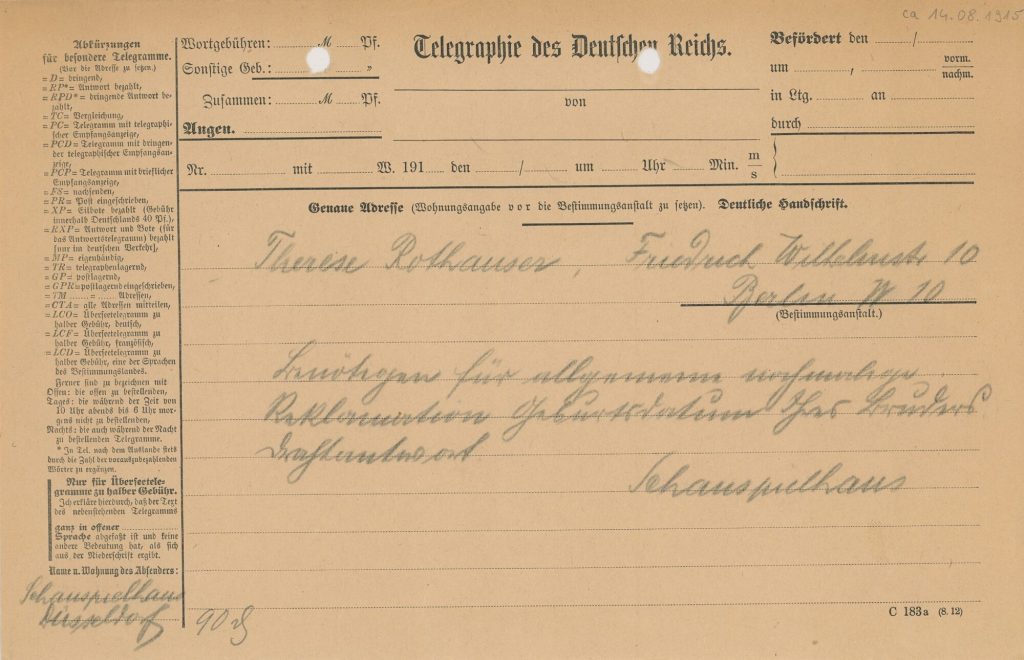 ca 14.08.1915
Abkürzungen
für besondere Telegramme.
(Vor die Adresse zu setzen.)
=D= dringend,
=RP*= Antwort bezahlt,
=RPD*= dringende Antwort be-
zahlt,
=TC= Vergleichung,
=PC= Telegramm mit telegraphi-
scher Empfangsanzeige,
=PCD= Telegramm mit dringen-
der telegraphischer Empfangsan-
zeige,
=PCP= Telegramm mit brieflicher
Empfangsanzeige,
=FS= nachsenden,
=PR= Post eingeschrieben,
=XP= Eilbote bezahlt (Gebühr
innerhalb Deutschlands 40 Pf.).
=RXP= Antwort und Bote (für
das Antwortstelegramm) bezahlt
[nur im deutschen Verkehr],
=MP= eigenhändig,
=TR= telegraphenlagernd,
=GP= postlagernd,
=GPR= postlagernd eingeschrieben,
=TM ........ = ........ Adressen,
=CTA= alle Adressen mitteilen,
=LCO= Überseetelegramm zu
halber Gebühr, deutsch,
=LCF= Überseetelegramm zu
halber Gebühr, französisch,
=LCD= Überseetelegramm zu
halber Gebühr, eine der Sprachen
des Bestimmungslandes.
Ferner sind zu bezeichnen mit
Offen: die offen zu bestellenden,
Tages: die während der Zeit von
10 Uhr abends bis 6 Uhr mor-
gens nicht zu bestellenden,
Nachts: die auch während der Nacht
zu bestellenden Telegramme.
* In Tel. nach dem Auslande stets
durch die Zahl der vorauszubezahlenden
Wörter zu ergänzen.
Nur für Überseetele-
gramme zu halber Gebühr.
Ich erkläre hierdurch, daß der Text
des nebenstehenden Telegramms
ganz in offener
Sprache abgefaßt ist und keine
andere Bedeutung hat, als sich
aus der Niederschrift ergibt.
Name u. Wohnung des Absenders:
Schauspielhaus
Düsseldorf
Wortgebühren: M Pf.
Sonstige Geb.: "
Zusammen: M Pf.
Angen.
Telegraphie des Deutschen Reichs.
von
Befördert den /
um , vorm.
nachm.
in Ltg. an
durch
Nr. mit W. 191 den / um Uhr Min. m
s
Genaue Adresse (Wohnungsangabe vor die Bestimmungsanstalt zu setzen). Deutliche Handschrift.
Therese Rothauser, Friedrich Wilhelmstr 10
Berlin W 10
(Bestimmungsanstalt.)
Benötigen für allgemeine nochmalige
Reklamation Geburtsdatum Ihres Bruders
Drahtantwort
Schauspielhaus
90
C 183a (8. 12)